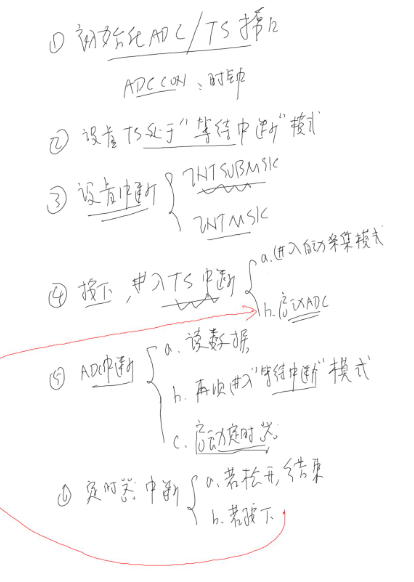 ① 初始化ADC/TS接口
ADCCON：时钟
② 设置TS处于"等待中断"模式
③ 设置中断
INTSUBMSK
INTMSK
④ 按下，进入TS中断
a.进入自动采集模式
b.启动ADC
⑤ ADC中断
a. 读数据
b. 再次进入"等待中断"模式
c. 启动定时器
⑥ 定时器中断
a.若松开，结束
b.若按下